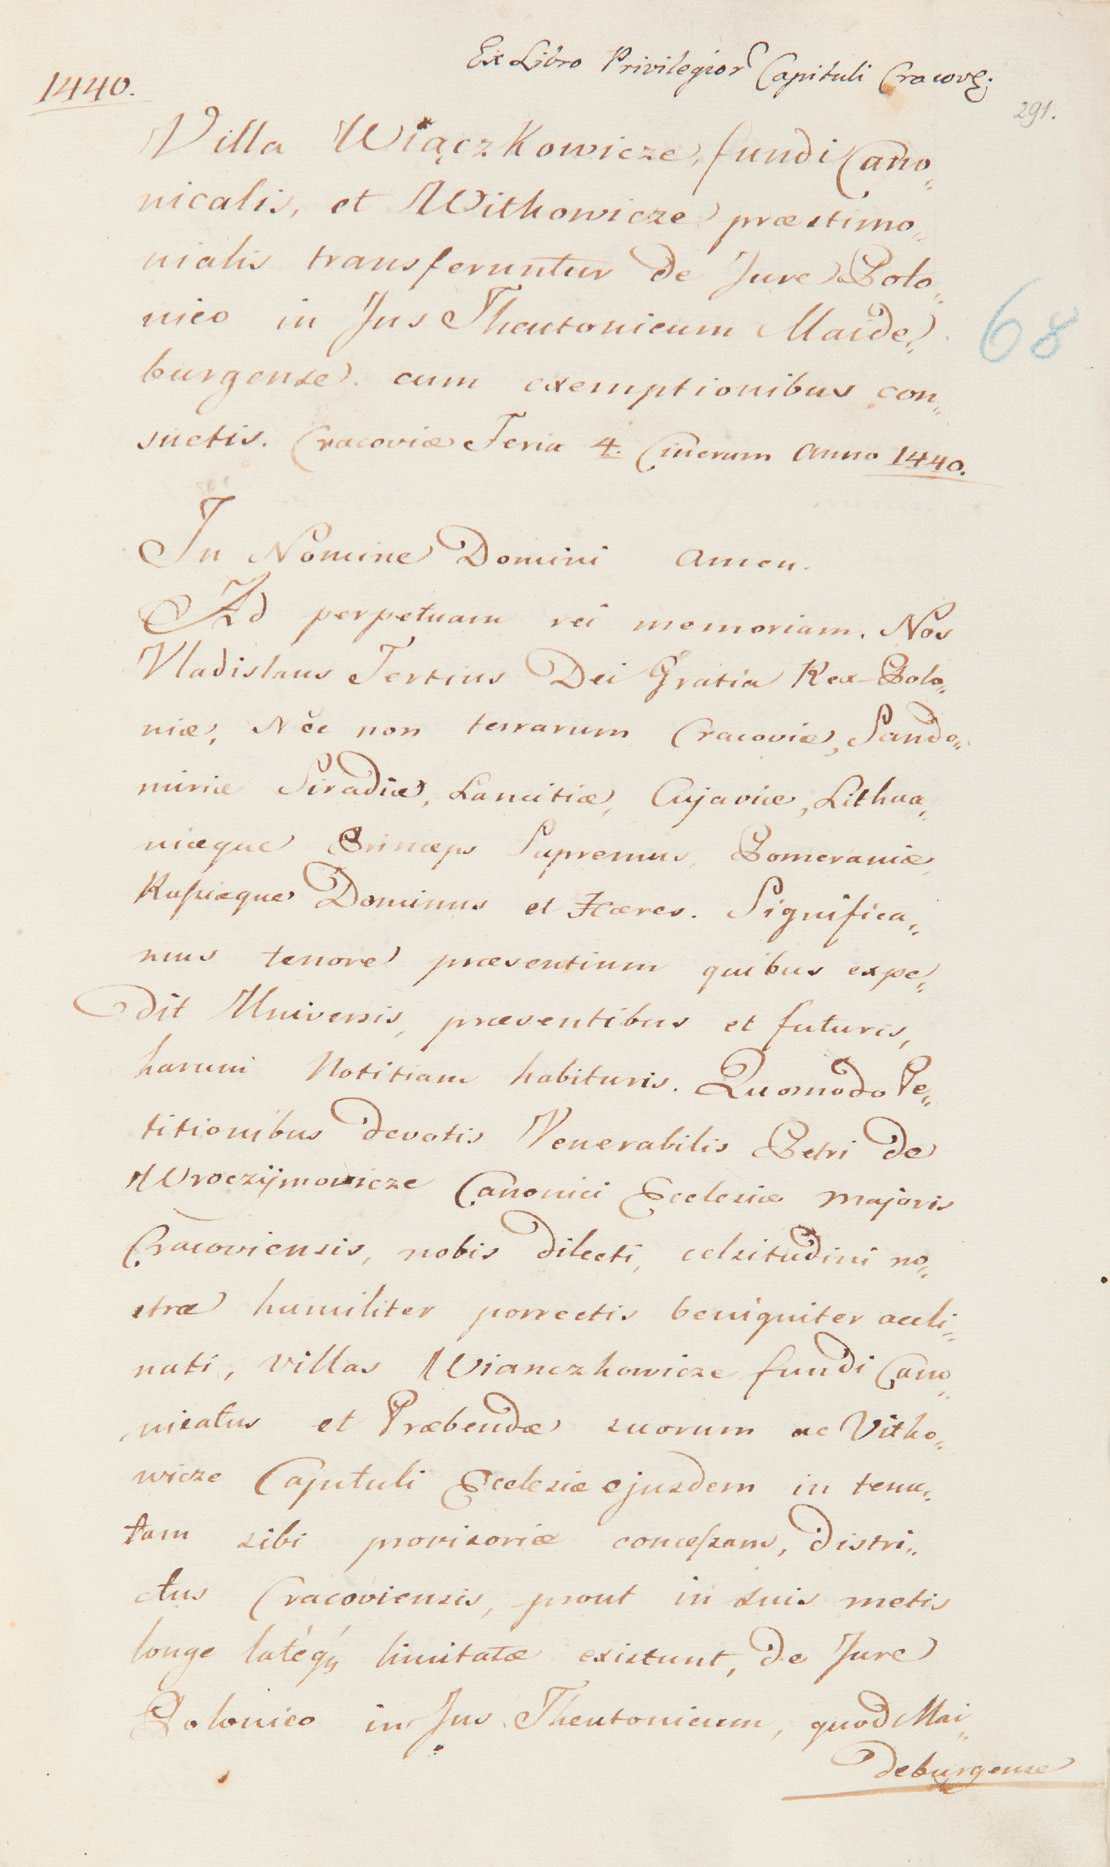 Ex Libro Privilegior Capituli Cracov:
1440.
291.
Villa Wiączkowicze, fundi Cano„
nicalis, et Withowicze præstimo„
nialis transferuntur de Jure Polo„
nico in Jus Theutonicum Maide„
burgense. cum exemptionibus con„
suetis. Cracoviæ Feria 4. Cinerum Anno 1440.
68
In Nomine Domini Amen.
Ad perpetuam rei memoriam. Nos
Vladislaus Tertius Dei Gratia Rex Polo„
niæ, Nec non terrarum Cracoviæ, Sando„
miriæ Siradiæ, Lancitiæ, Cujaviæ, Lithua„
niæque Princeps Supremus, Pomeraniæ,
Rusſiæque Dominus et Hæres. Significa„
mus tenore præsentium quibus expe„
dit Universis, præsentibus et futuris,
harum Notitiam habituris. Quomodo Pe„
titionibus devotis Venerabilis Petri de
Wroczÿmowicze Canonici Ecclesiæ majoris
Cracoviensis, nobis dilecti, celsitudini no„
stræ humiliter porrectis benigniter accli„
nati, villas Wianczkowicze fundi Cano„
nicatus et Præbendæ suorum ac Vitko„
wicze Capituli Ecclesiæ ejusdem in tenu„
tam sibi provisoriæ conceſsam, distri„
ctus Cracoviensis, prout in suis metis
longe latéq́„ limitatæ existunt, de Jure
Polonico in Jus Theutonicum, quod Mai„
deburgense